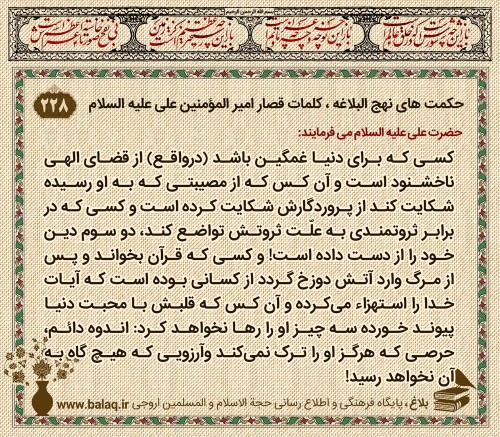 بسم الله الرحمن الرحیم
باز این چه شورش است که در خلق عالم است
باز این چه نوحه و چه عزا و چه ماتم است
حکمت های نهج البلاغه ، کلمات قصار امیر المؤمنین علی علیه السلام
۲۲۸
حضرت علی علیه السلام می فرمایند:
کسی که برای دنیا غمگین باشد (درواقع) از قضای الهی
ناخشنود است و آن کس که از مصیبتی که به او رسیده
شکایت کند از پروردگارش شکایت کرده است و کسی که در
برابر ثروتمندی به علّت ثروتش تواضع کند، دو سوم دین
خود را از دست داده است! و کسی که قرآن بخواند و پس
از مرگ وارد آتش دوزخ گردد از کسانی بوده است که آیات
خدا را استهزاء می‌کرده و آن کس که قلبش با محبت دنیا
پیوند خورده سه چیز او را رها نخواهد کرد: اندوه دائم،
حرصی که هرگز او را ترک نمی‌کند وآرزویی که هیچ گاه به
آن نخواهد رسید!
بلاغ ، پایگاه فرهنگی و اطلاع رسانی حجة الاسلام و المسلمین اروجی www.balaq.ir